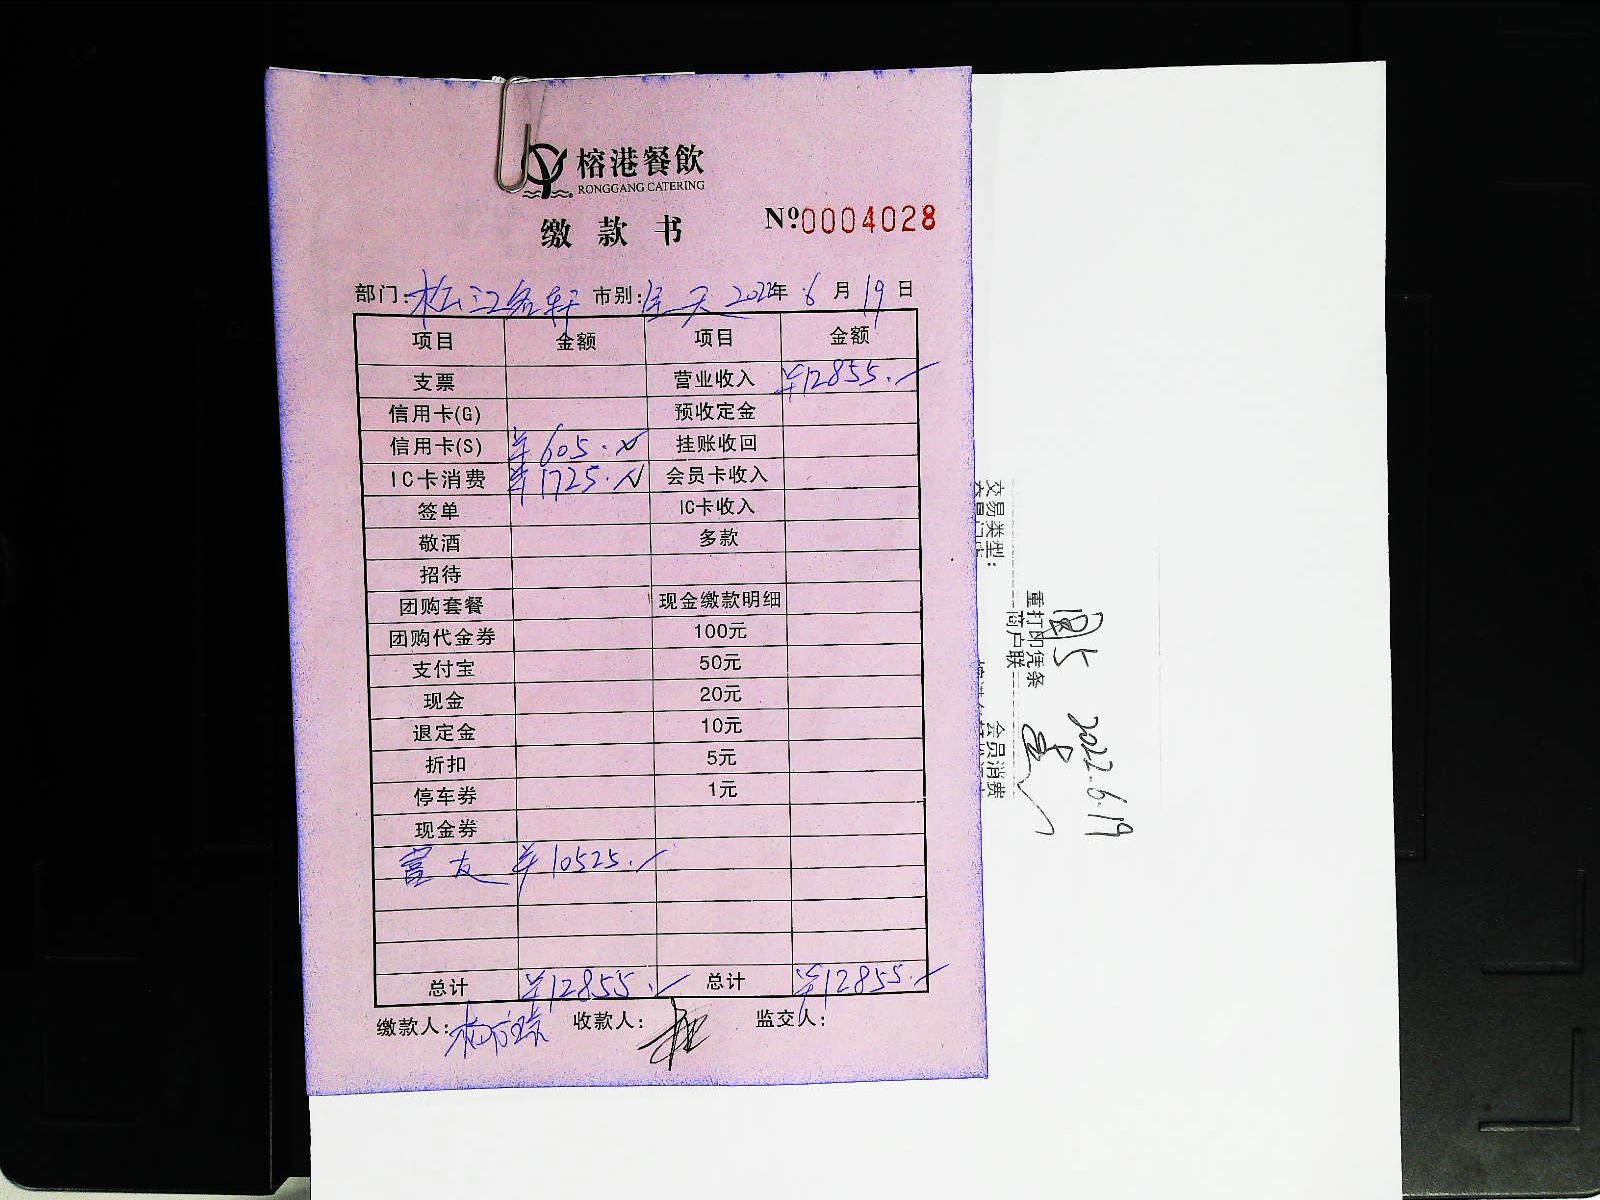 榕港餐飲
RONGGANG CATERING
缴款书 Nº0004028
部门:松江名轩 市别:全天 2022年 6月19日
项目 金额 项目 金额
支票 营业收入 ¥12855.
信用卡(G) 预收定金
信用卡(S) ¥605. 挂账收回
IC卡消费 ¥1725. 会员卡收入
签单 IC卡收入
敬酒 多款
招待
团购套餐 现金缴款明细
团购代金券 100元
支付宝 50元
现金 20元
退定金 10元
折扣 5元
停车券 1元
现金券
富友 ¥10525.
总计 ¥12855. 总计 ¥12855.
缴款人: 收款人: 监交人:
2022.6.19
重打印凭条
商户联
交易类型: 会员消费